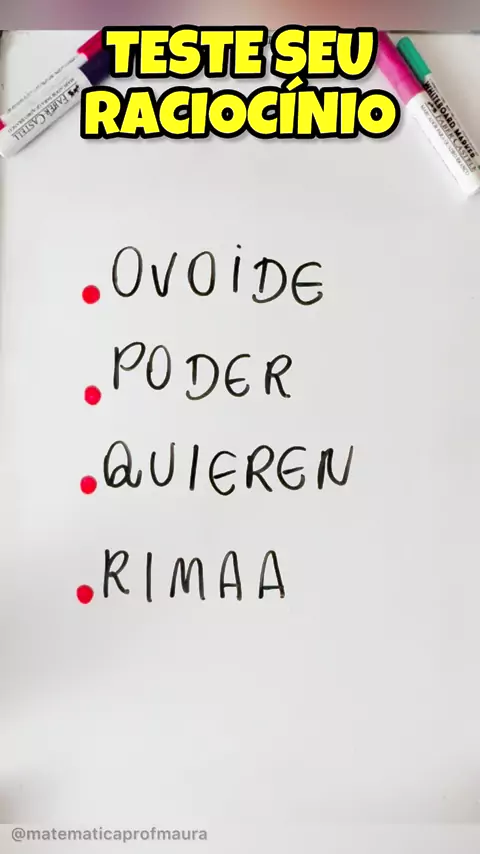 TESTE SEU
RACIOCÍNIO
FABER-CASTELL
WHITEBOARD MARKER
FABER-CASTELL
OVOIDE
PODER
QUIEREN
RIMAA
@matematicaprofmaura